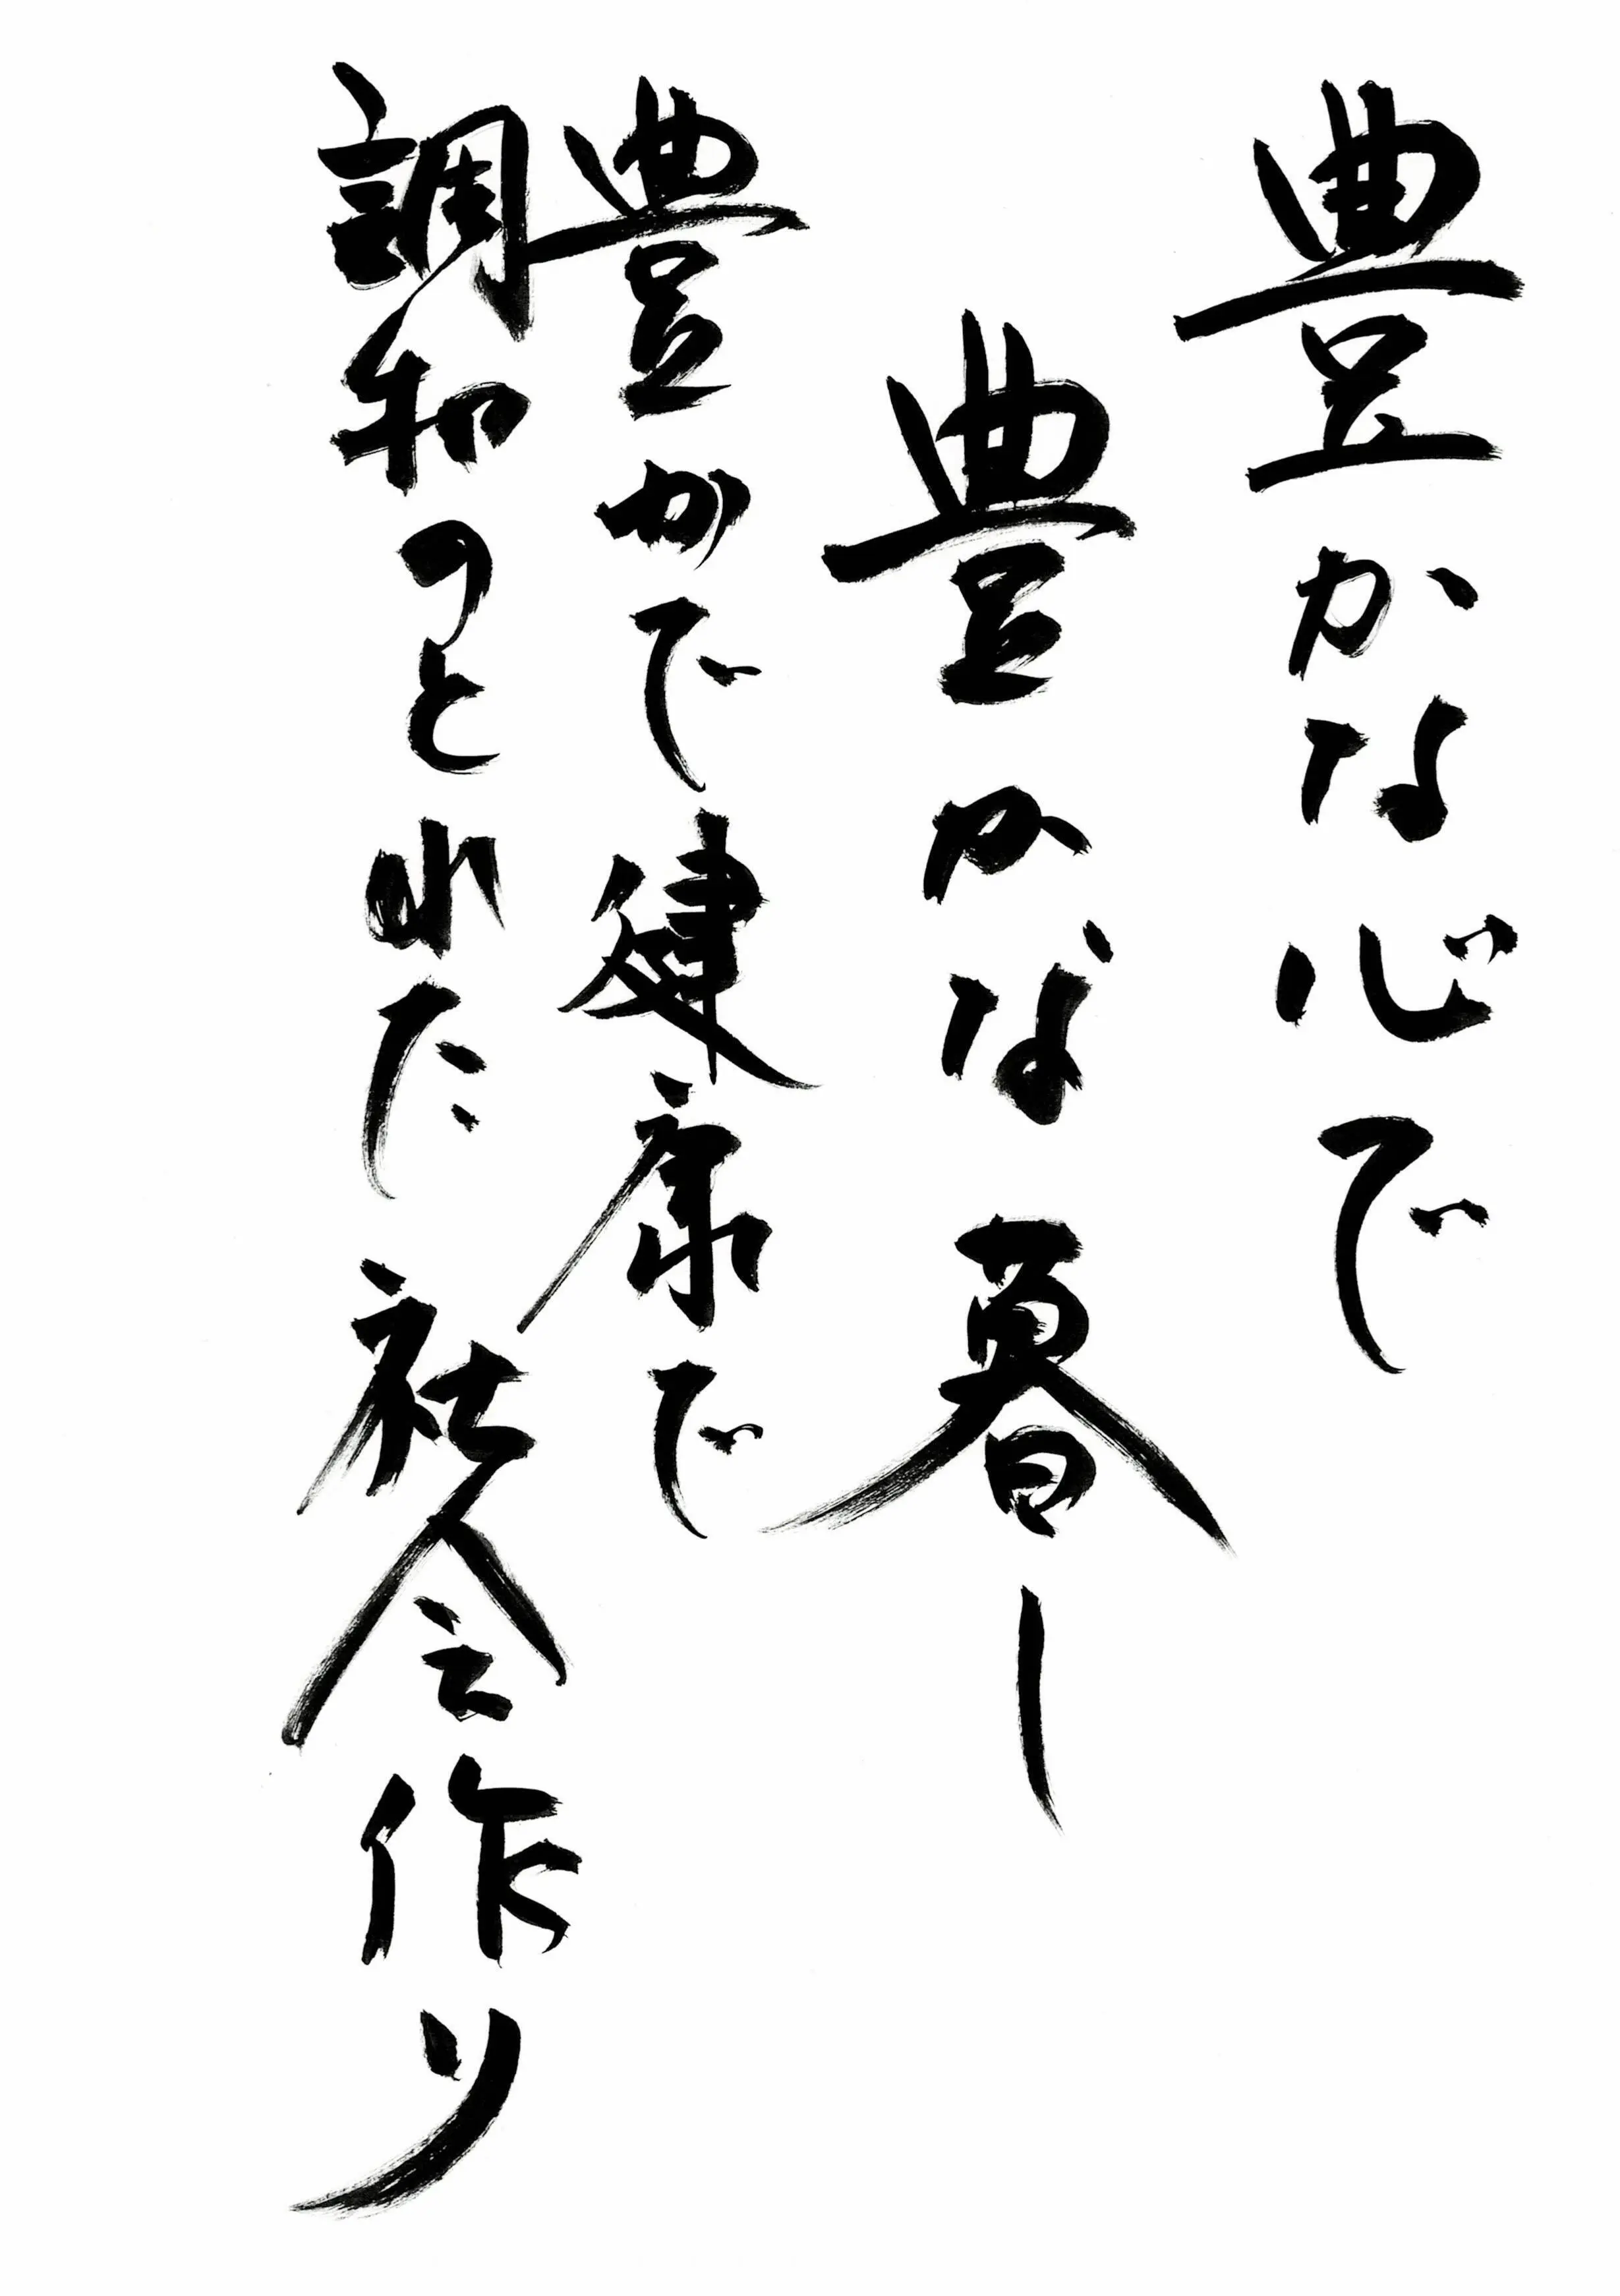 豊かな心で
豊かな暮し
豊かで健康で
調和のとれた社会作り